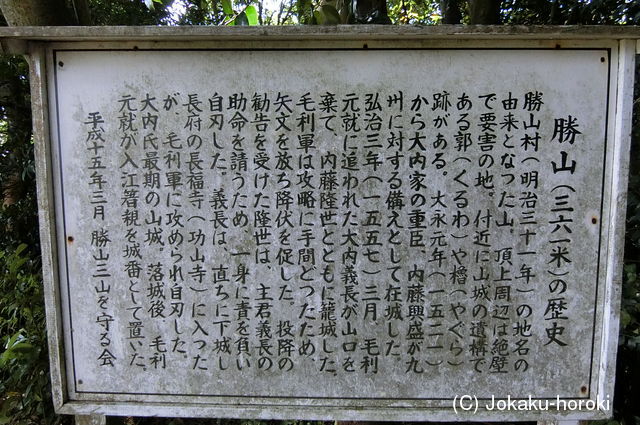 勝山(三六一米)の歴史
勝山村(明治三十一年)の地名の
由来となった山、頂上周辺は絶壁
で要害の地。付近に山城の遺構で
ある郭(くるわ)や櫓(やぐら)
跡がある。大永元年(一五二一)
から大内家の重臣、内藤興盛が九
州に対する備えとして在城した。
弘治三年(一五五七)三月、毛利
元就に追われた大内義長が山口を
棄て、内藤隆世とともに籠城した。
毛利軍は攻略に手間どったため、
矢文を放ち降伏を促した。投降の
勧告を受けた隆世は、主君義長の
助命を請うため、一身に責を負い
自刃した。義長は、直ちに下城し
長府の長福寺(功山寺)に入った
が、毛利軍に攻められ自刃した。
大内氏最期の山城。落城後、毛利
元就が入江著親を城番として置いた。
平成十五年三月 勝山三山を守る会
(C)Jokaku-horoki